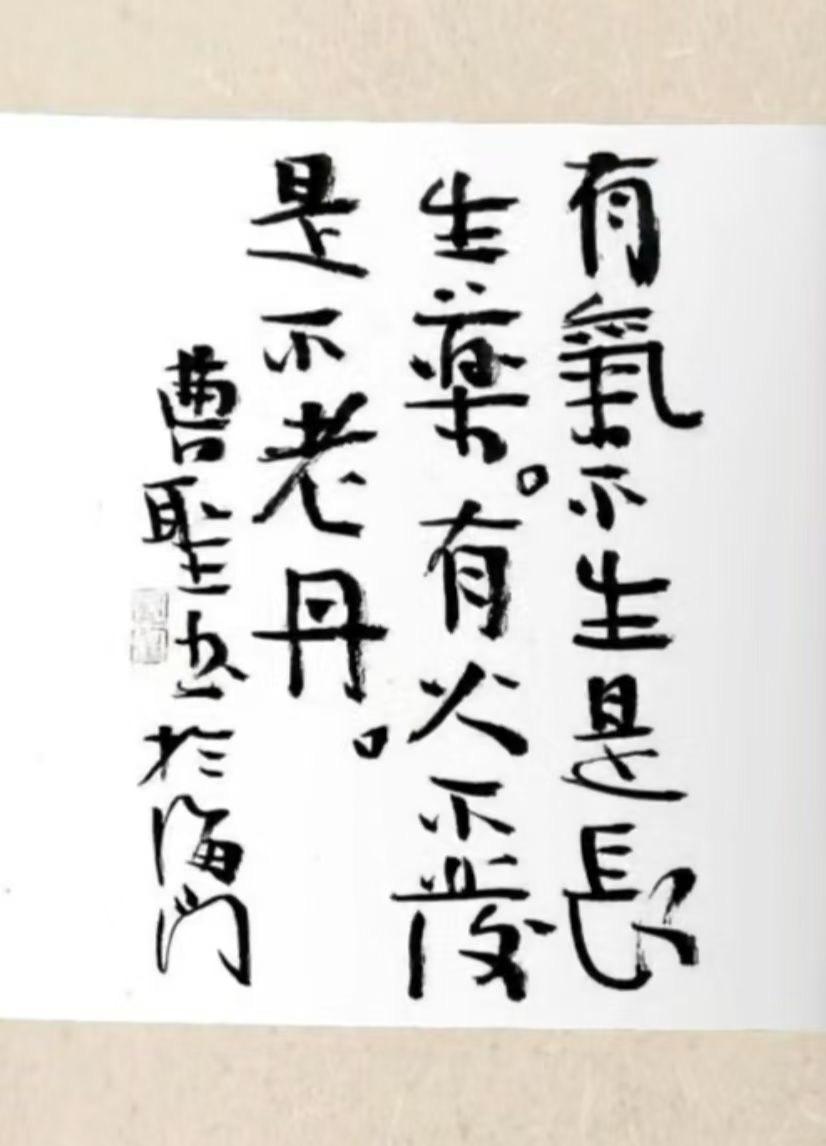 有氣不生是長
生藥。有火不發
是不老丹。
曹聖於海門